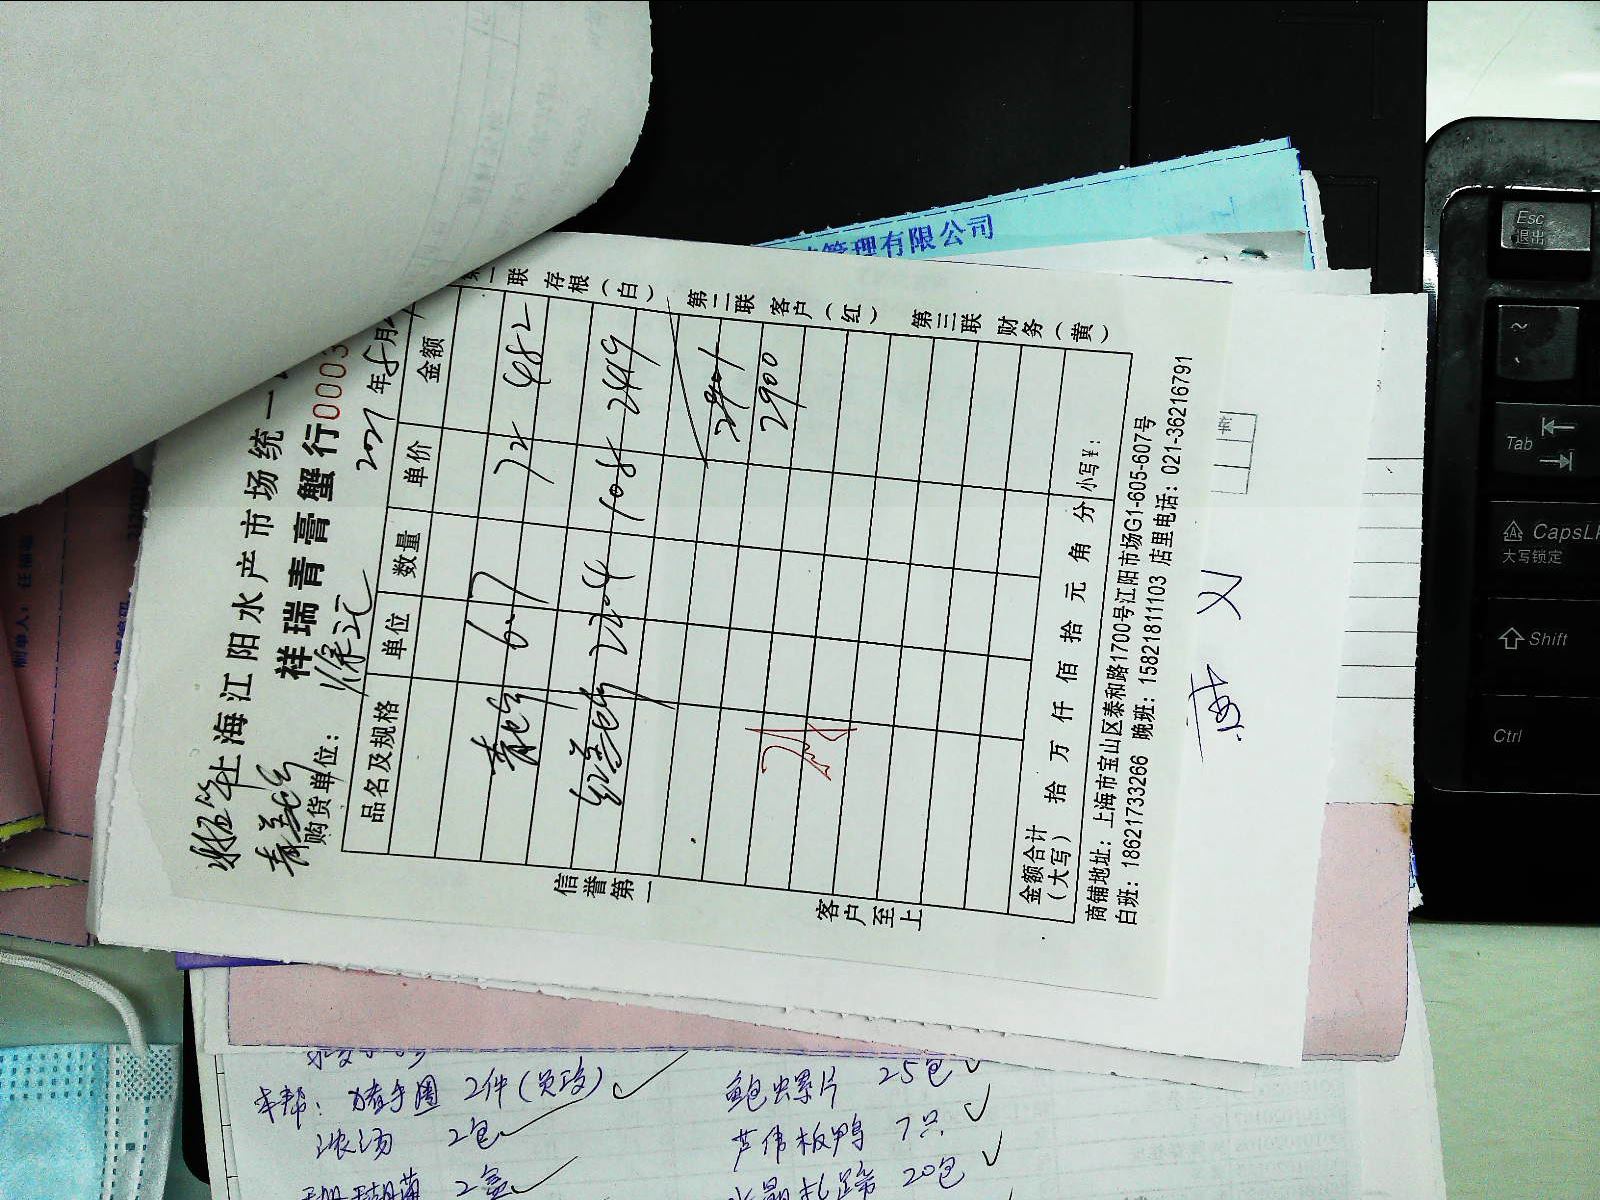 上海江阳水产市场统一
祥瑞青膏蟹行 00003
购货单位：徐汇 2021年8月
品名及规格 单位 数量 单价 金额
青蟹 6.7 72 482
红膏蟹 22.4 108 2419
2901
2900
金额合计（大写） 拾 万 仟 佰 拾 元 角 分 小写¥：
商铺地址：上海市宝山区泰和路1700号江阳市场G1-605-607号
白班：18621733266 晚班：15821811103 店里电话：021-36216791
第一联 存根（白） 第二联 客户（红） 第三联 财务（黄）
信誉第一
客户至上
管理有限公司
制单人：任
本帮：猪手圈 2件
浓汤 2包
2盒
鲍虫累片 25包
芦伟板鸭 7只
水晶扎蹄 20包
Esc
退出
~
Tab
CapsL
大写锁定
Shift
Ctrl